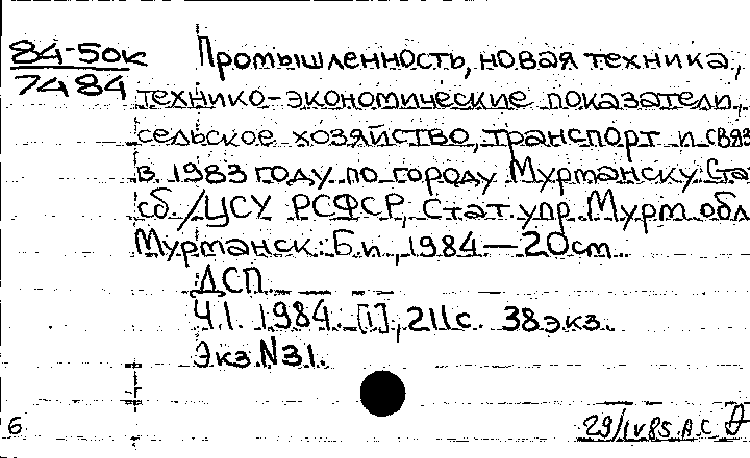 84-50к
7484
Промышленность, новая техника,
технико-экономические показатели,
сельское хозяйство, транспорт и связ
в 1983 году по городу Мурманску. Ста
сб./ЦСУ РСФСР, Стат. упр. Мурм. обл
Мурманск: Б.и., 1984 — 20см
ДСП
Ч.1. 1984. [1], 211с. 38экз.
Экз. N31.
6
29/IV85. В.С.